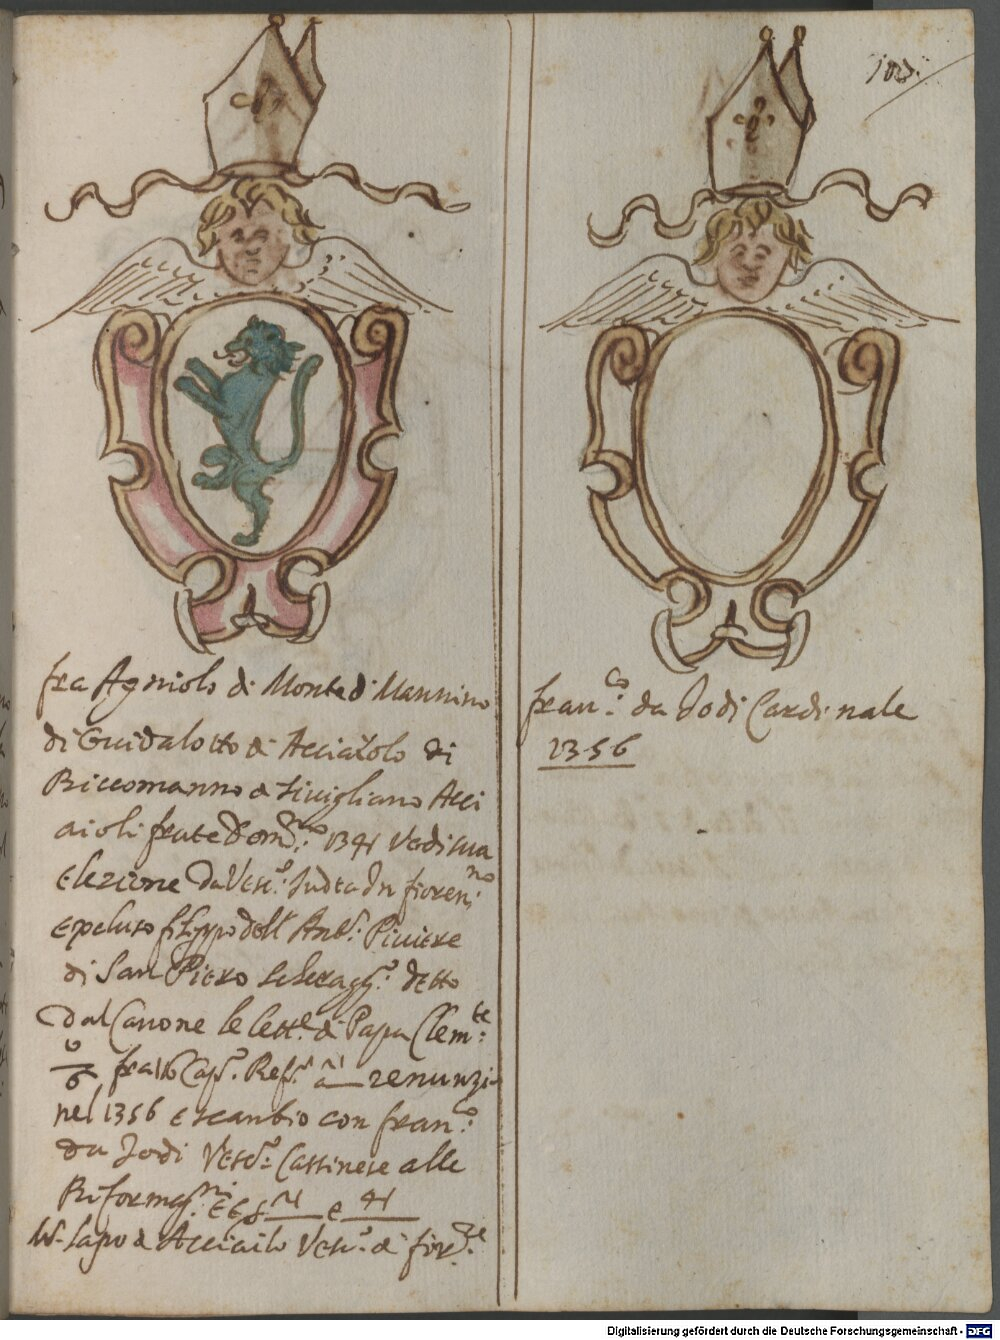 103.
fra Agniolo di Monte di Mannino
di Guidalotto di Acciaiolo di
Riccomanno di Livigliano Acci
aioli frate Dom.co 1341 Vedi sua
Elezione Da Vesc.o In fioren.no
di San Piero Scheragg.o detto
dal Canone le lett.e di Papa Clem.te
6 renunzi
nel 1356 E scanbio con fran.co
da Todi Vesc.o Cassinese alle
Riformag.ni
M. Lapo d Acciaiolo Vesc.o di
fran.co da Todi Cardinale
1356
Digitalisierung gefördert durch die Deutsche Forschungsgemeinschaft - DFG